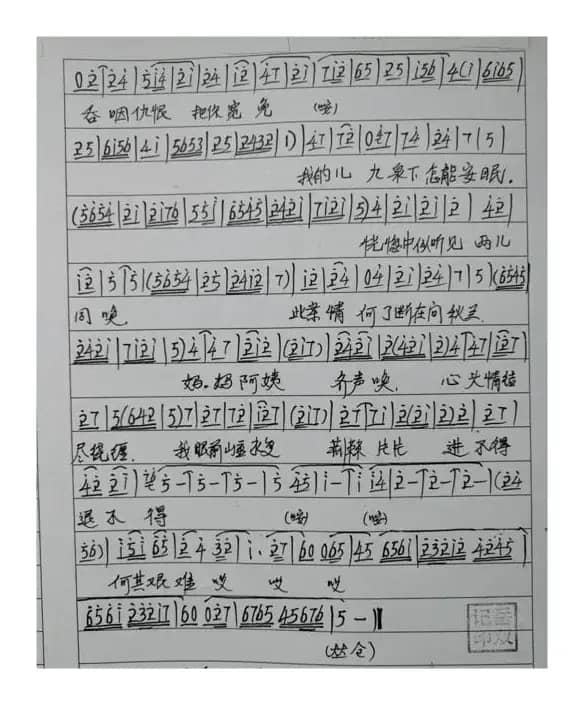 0 2̇ | 2̇ 4̇ | 5̇ i 4̇ | 2̇ i | 2̇ 4̇ | i 2̇ | 4̇ 7 | 2̇ i | 7 i 2̇ | 6 5 | 2 5 | i 5 6 | 4 ( i | 6 i 6 5 |
吞咽仇恨 把你宽免 (唉)
2 5 | 6 i 5 6 | 4 i | 5 6 5 3 | 2 5 | 2 4 3 2 | 1 ) | 4 7 | 7 2̇ | 0 2̇ 7 | 7 4̇ | 2̇ 4 | 7 | 5 |
我的儿 九泉下怎能安眠.
( 5 6 5 4 | 2̇ i | 2̇ i 7 6 | 5 5 i | 6 5 4 5 | 2̇ 4̇ 2̇ i | 7 i 2̇ i | 5 ) 4̇ | 2̇ i | 2̇ i | 2̇ | 4̇ 2̇ |
恍惚中似听见 两儿
i 2̇ | 5 | 5 | ( 5 6 5 4 | 2̇ 5 | 2̇ 4 i 2̇ | 7 ) | i 2̇ | 2̇ 4̇ | 0 4̇ | 2̇ i | 2̇ 4̇ | 7 | 5 | ( 6 5 4 5 |
同唤 此案情 何了断在问
2̇ 4̇ 2̇ i | 7 i 2̇ i | 5 ) 4̇ | 4̇ 7 | 2̇ i 2̇ | ( 2̇ i 7 ) | 2̇ 4̇ 2̇ i | 2̇ ( 4̇ 2̇ i | 2̇ ) 4̇ | 4̇ 7 | i 2̇ 7 |
妈.妈阿姨 齐声唤. 心头情结
2̇ 7 | 5 ( 6 4 2 | 5 ) 7 | 2̇ 7 | 7 2̇ | i 2̇ 7 | ( 2̇ i 7 ) | 2̇ 7 | 7 i | 2̇ ( 2̇ i | 2̇ ) 2̇ | 2̇ 7 |
尽绕缠. 我眼前 荆棘片片 进不得
4̇ 2̇ 2̇ i | 5̇ - | 5̇ - | 5̇ - | 5̇ 4̇ 5̇ | i - | i i 4̇ | 2̇ - | 2̇ - | 2̇ - | ( 2 4
退不得 (唉) (唉)
5 6 ) | i 5 i 6 5 | 2̇ 4 3 2̇ | i . 2̇ 7 | 6 0 0 6 5 | 4 5 6 5 6 i | 2̇ 3̇ 2̇ i 2̇ 4̇ 2̇ 4̇ 5̇ |
何其艰难 哎 哎 哎
6 5 6 i 2̇ 3̇ 2̇ i 7 | 6 0 0 2̇ 7 | 6 7 6 5 4 5 6 7 6 | 5 - ‖
仓)